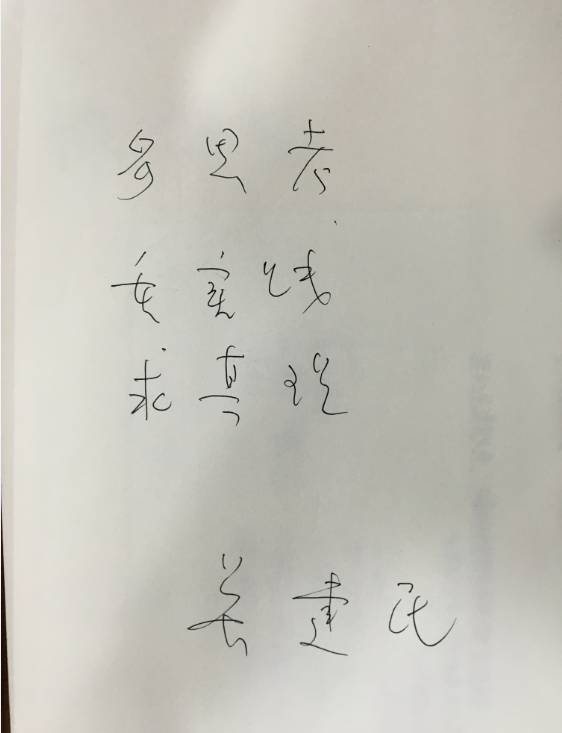 多思考
重实践
求真理
吴建民